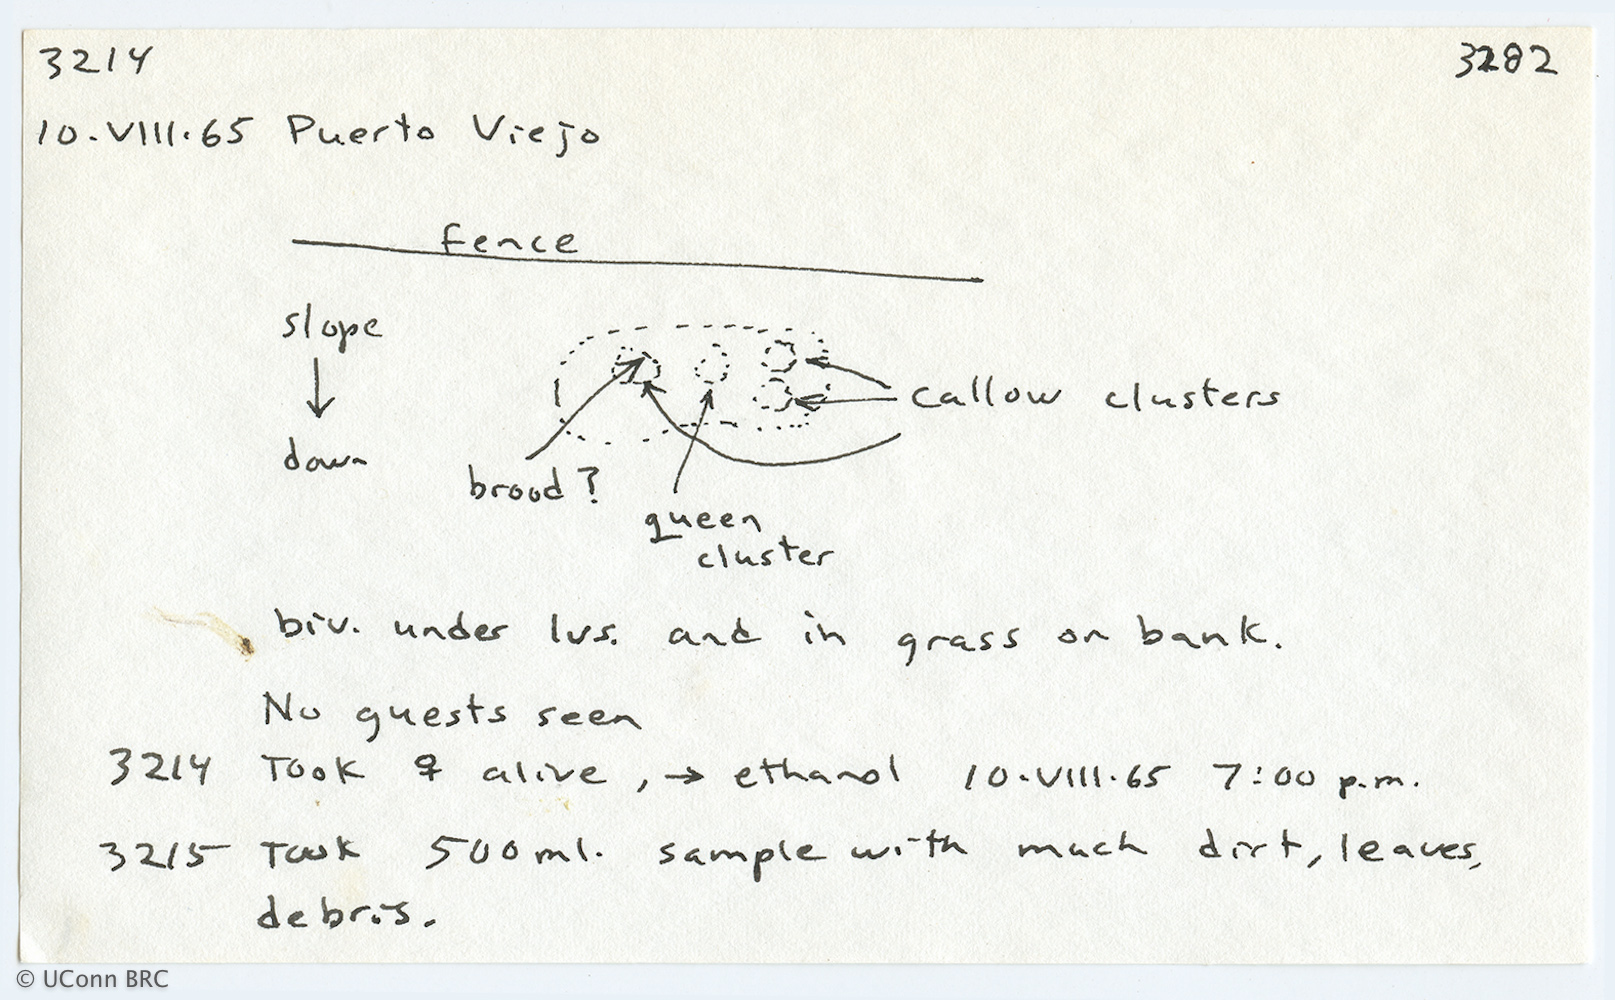 3214 3282
10.VIII.65 Puerto Viejo
fence
slope
down
brood?
queen
cluster
callow clusters
biv. under lvs. and in grass on bank.
No guests seen
3214 Took ♀ alive, → ethanol 10.VIII.65 7:00 p.m.
3215 Took 500 ml. sample with much dirt, leaves,
debris.
© UConn BRC